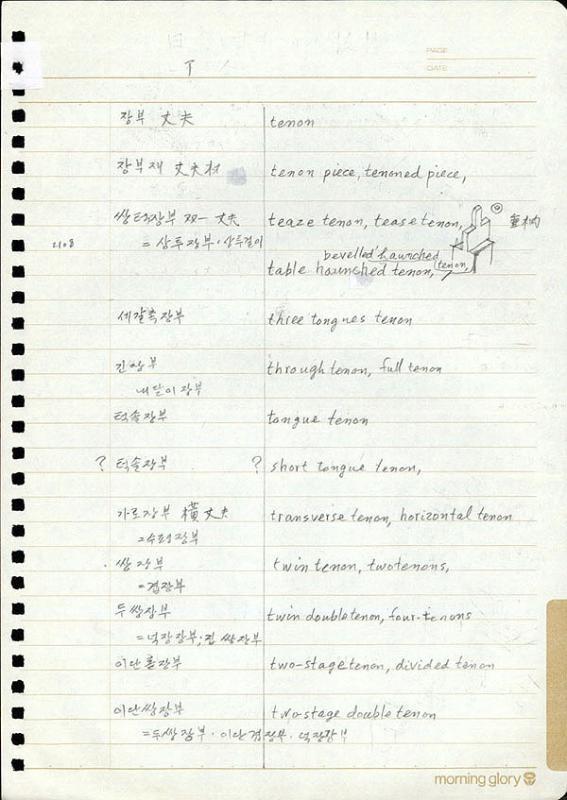 PAGE
DATE
T
장부 丈夫 tenon
장부재 丈夫材 tenon piece, tenoned piece,
쌍턱장부 双一丈夫 teaze tenon, tease tenon,
= 상투장부·상투걸이 bevelled haunched tenon,
table haunched tenon,
세갈촉장부 three tongues tenon
긴장부 through tenon, full tenon
내달이장부
턱솔장부 tongue tenon
? 턱솔장부 ? short tongue tenon,
가로장부 橫丈夫 transverse tenon, horizontal tenon
=수평장부
쌍장부 twin tenon, two tenons,
=겹장부
두쌍장부 twin double tenon, four-tenons
=넉장장부, 겹쌍장부
이단 장부 two-stage tenon, divided tenon
이단쌍장부 two-stage double tenon
=두쌍장부·이단겹장부·넉장장부
morning glory